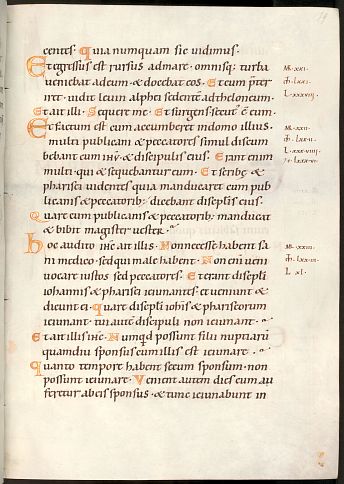 centes · Quia numquam sic vidimus ·
Et egressus est rursus ad mare · omnisq; turba
veniebat ad eum · & docebat eos · Et cum preter
iret · vidit levin alphei sedentē ad theloneum ·
Et ait illi · Sequere me · Et surgens secut' ē eum ·
Et factum est cum accumberet in domo illius ·
multi publicani & peccatores simul discum
bebant cum ihū & discipulis eius · Erant enim
multi qui & sequebantur eum · Et scribę &
pharisei videntes quia manducaret cum pub
licanis & peccatorib; dicebant discipulis eius ·
Quare cum publicanis & peccatorib; manducat
& bibit magister vester ·
Hoc audito ihs ait illis · Non necesse habent sa
ni medico · sed qui male habent · Non enī veni
vocare iustos sed peccatores · Et erant discipli
iohannis & pharisei ieiunantes · et veniunt &
dicunt ei · Quare discipli iohis & phariseorum
ieiunant · tui autē discipuli non ieiunant ·
Et ait illis ihs · Numqd possunt filii nuptiarū
quamdiu sponsus cum illis est ieiunare ·
Quanto tempore habent secum sponsum · non
possunt ieiunare · Venient autem dies cum au
feretur ab eis sponsus · & tunc ieiunabunt in
M · XXI ·
L · XXXVIIII
M · XXII ·
M · XXIII ·
L · XL ·